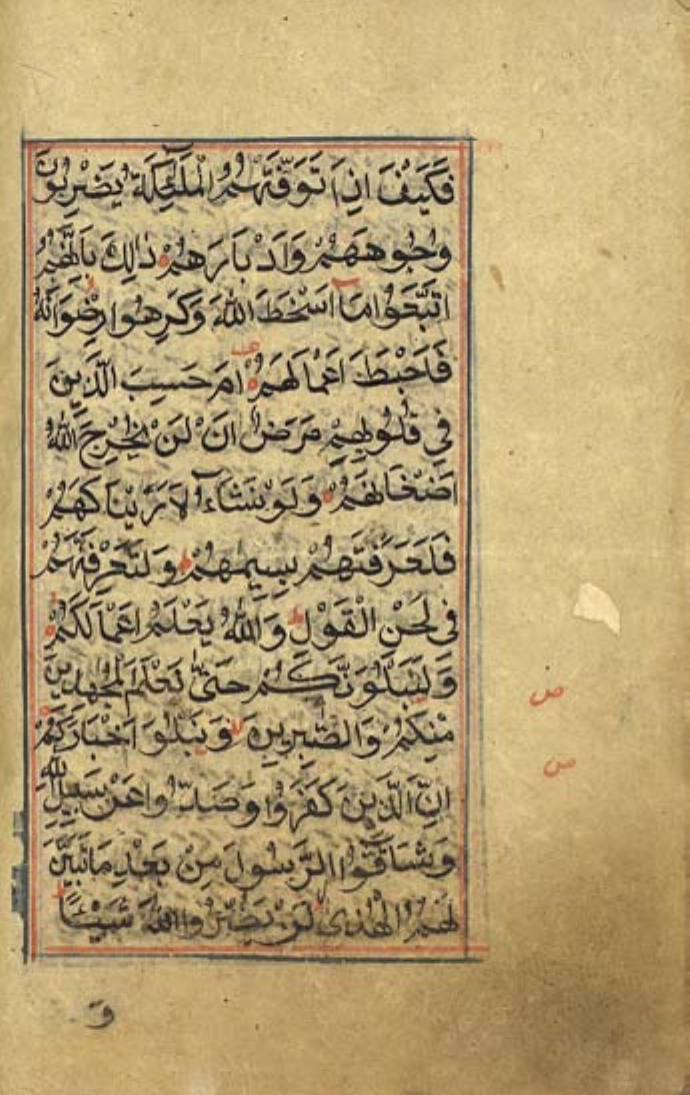 فَكَيْفَ اِذَا تَوَفَّتْهُمُ الْمَلٰٓئِكَةُ يَضْرِبُوْنَ
وُجُوْهَهُمْ وَاَدْبَارَهُمْ ذٰلِكَ بِاَنَّهُمُ
اتَّبَعُوْا مَآ اَسْخَطَ اللّٰهَ وَكَرِهُوْا رِضْوَانَهٗ
فَاَحْبَطَ اَعْمَالَهُمْ ع اَمْ حَسِبَ الَّذِيْنَ
فِيْ قُلُوْبِهِمْ مَرَضٌ اَنْ لَنْ يُخْرِجَ اللّٰهُ
اَضْغَانَهُمْ وَلَوْ نَشَآءُ لَاَرَيْنَاكَهُمْ
فَلَعَرَفْتَهُمْ بِسِيْمٰهُمْ ط وَلَتَعْرِفَنَّهُمْ
فِيْ لَحْنِ الْقَوْلِ ط وَاللّٰهُ يَعْلَمُ اَعْمَالَكُمْ
وَلَنَبْلُوَنَّكُمْ حَتّٰى نَعْلَمَ الْمُجٰهِدِيْنَ
مِنْكُمْ وَالصّٰبِرِيْنَ لا وَنَبْلُوَ اَخْبَارَكُمْ
اِنَّ الَّذِيْنَ كَفَرُوْا وَصَدُّوْا عَنْ سَبِيْلِ اللّٰهِ
وَشَآقُّوا الرَّسُوْلَ مِنْ بَعْدِ مَا تَبَيَّنَ
لَهُمُ الْهُدٰى لَنْ يَضُرُّوا اللّٰهَ شَيْئًا ط
ص
ص
وَ